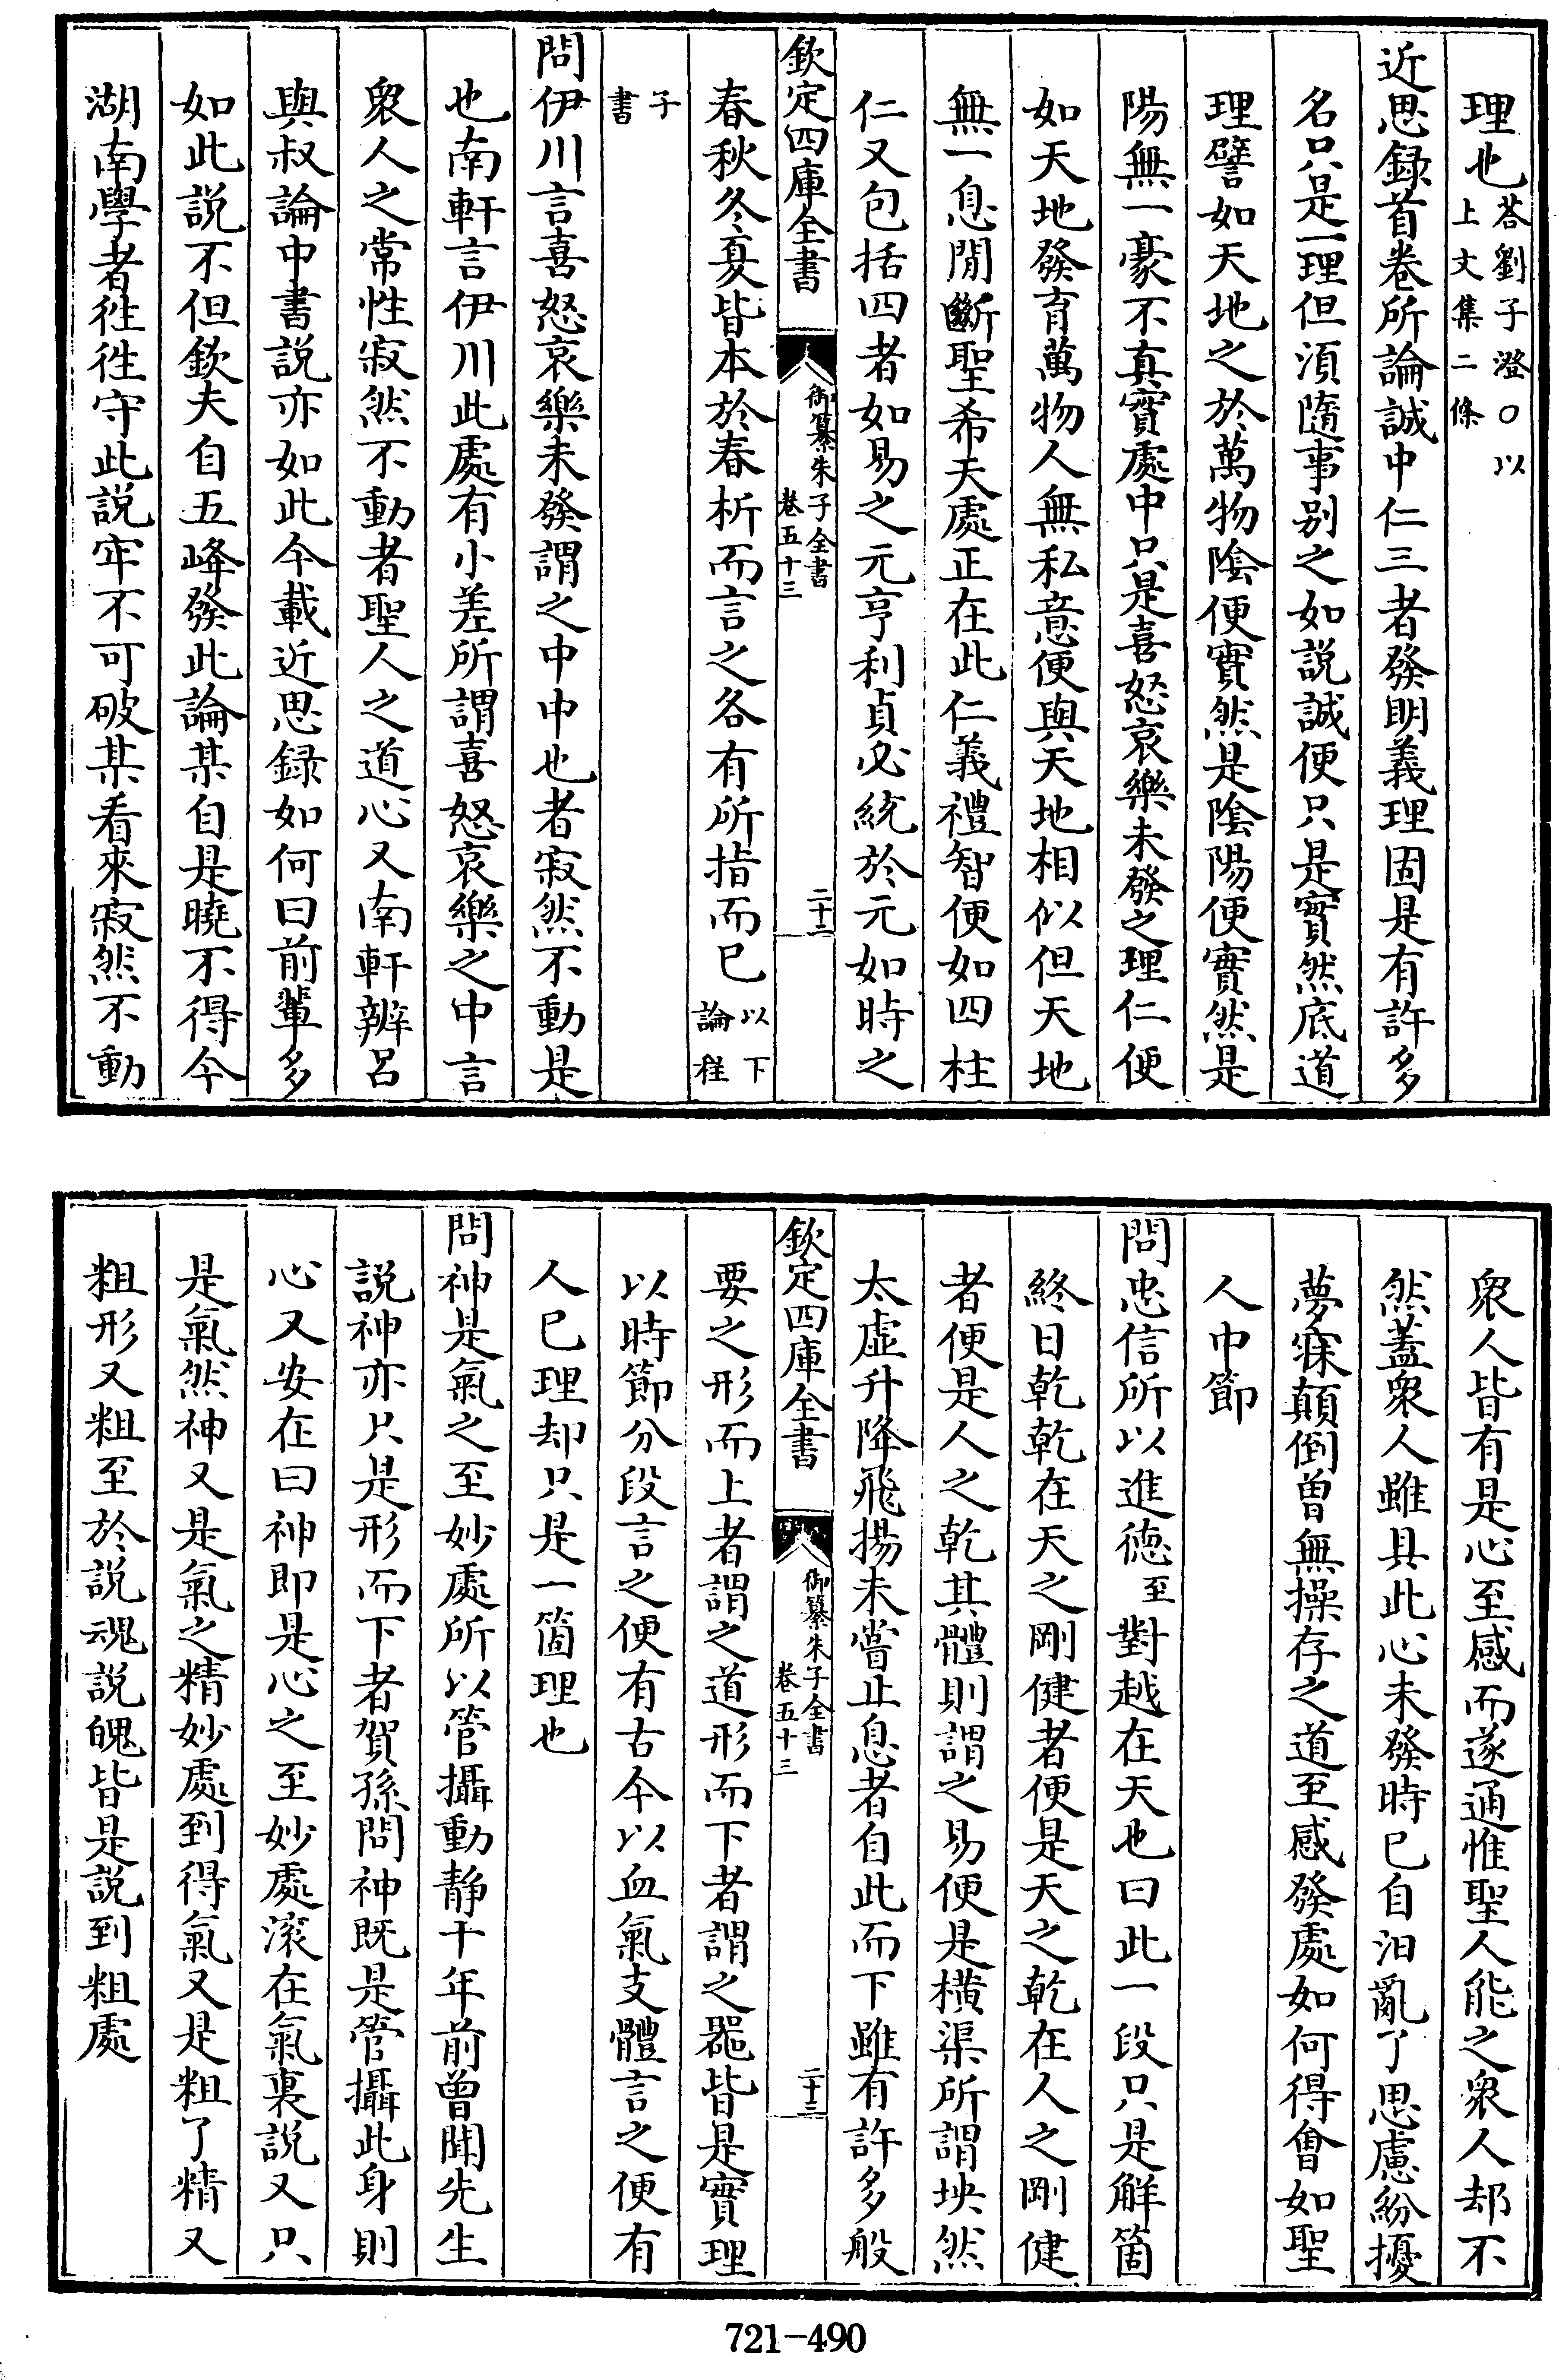 理也答劉子澄○以上文集二條
近思録首卷所論誠中仁三者發明義理固是有許多
名只是一理但須隨事别之如說誠便只是實然底道
理譬如天地之於萬物陰便實然是陰陽便實然是
陽無一豪不真實處中只是喜怒哀樂未發之理仁便
如天地發育萬物人無私意便與天地相似但天地
無一息間斷聖希天處正在此仁義禮智便如四柱
仁又包括四者如易之元亨利貞必統於元如時之
欽定四庫全書 御纂朱子全書 卷五十三 二十二
春秋冬夏皆本於春析而言之各有所指而已以下論程
子書
問伊川言喜怒哀樂未發謂之中中也者寂然不動是
也南軒言伊川此處有小差所謂喜怒哀樂之中言
衆人之常性寂然不動者聖人之道心又南軒辨呂
與叔論中書說亦如此今載近思録如何曰前輩多
如此說不但欽夫自五峰發此論某自是曉不得今
湖南學者往往守此說牢不可破某看來寂然不動
衆人皆有是心至感而遂通惟聖人能之衆人却不
然蓋衆人雖具此心未發時已自汩亂了思慮紛擾
夢寐顛倒曾無操存之道至感發處如何得會如聖
人中節
問忠信所以進德至對越在天也曰此一段只是解箇
終日乾乾在天之剛健者便是天之乾在人之剛健
者便是人之乾其體則謂之易便是横渠所謂坱然
太虚升降飛揚未嘗止息者自此而下雖有許多般
欽定四庫全書 御纂朱子全書 卷五十三 二十三
要之形而上者謂之道形而下者謂之器皆是實理
以時節分段言之便有古今以血氣支體言之便有
人已理却只是一箇理也
問神是氣之至妙處所以管攝動静十年前曾聞先生
說神亦只是形而下者賀孫問神既是管攝此身則
心又安在曰神即是心之至妙處滚在氣裏說又只
是氣然神又是氣之精妙處到得氣又是粗了精又
粗形又粗至於說魂說魄皆是說到粗處
721-490